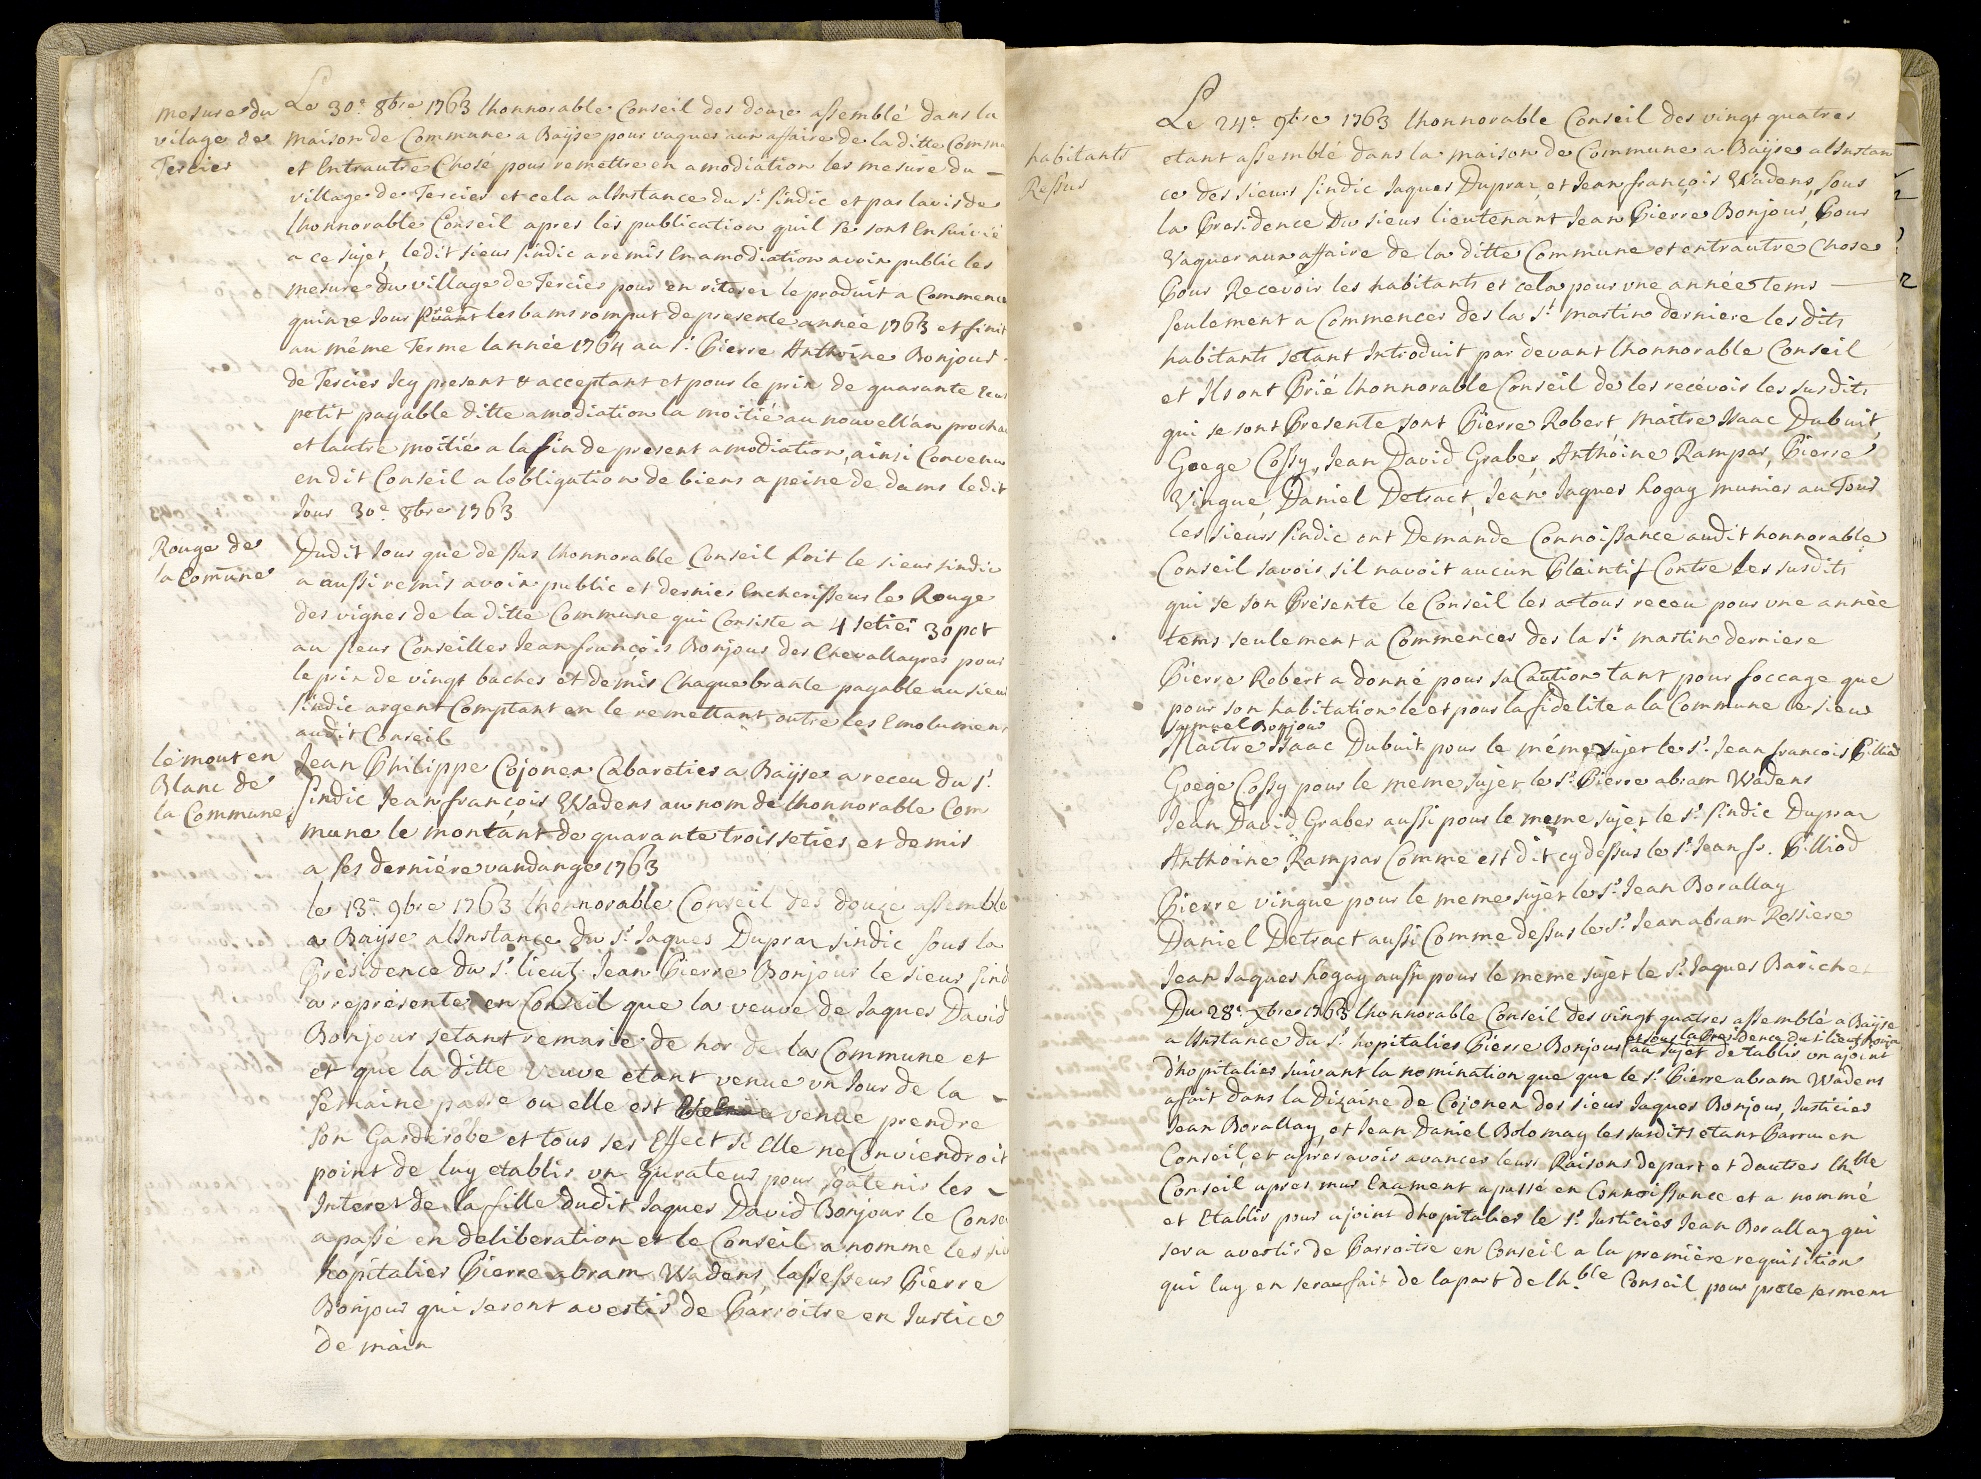 mesure du
vilage de
Tercier
Le 30e 8bre 1763 lhonnorable Conseil des douze assemblé dans la
maison de Commune a Baÿse pour vaquer aux affaire de la ditte Commu
et Entrautre Chosé pour remettre en amodiation les mesure du
village de Tercier et cela alInstance du Sr Sindic et par lavis de
lhonnorable Conseil apres les publication quil se sont Ensuivié
a ce Sujet, ledit sieur Sindic a remis En amodiation a voix public les
mesure du village de Tercier pour en retirer le produit a Commence
quinze Jour les bams romput de presente année 1763 et finir
au méme Terme lannée 1764 au Sr Pierre Anthoine Bonjour
de Tercier Icy present & acceptant et pour le prix de quarante Ecus
petit payable ditte amodiation la moitié au nouvell'an prochai
et lautre moitié a la fin de present amodiation, ainsi Convenu
en dit Conseil a lobligation de biens a peine de dams ledit
Jour 30e 8bre 1763
Rouge de
la Comune
Dudit Jour que dessus lhonnorable Conseil soit le sieur sindic
a aussi remis a voix public et dernier Encherisseur le Rouge
des vignes de la ditte Commune qui Consiste a 4 setier 30 pot
au sieur Conseiller Jean françois Bonjour des Chevallayres pour
le prix de vingt baches et demis Chaque brante payable au sieur
Sindic argent Comptant en le remettant, outre les Emolument
audit Conseil
lé mout en
Blanc de
la Commune
Jean Philippe Cojonex Cabaretier a Baÿse a receu du Sr
Sindic Jean françois Wadens au nom de lhonnorable Com
mune le montant de quarante trois setier et demis
a ses derniére vandange 1763
le 13e 9bre 1763 lhonnorable Conseil des douze assemble
a Baÿse alInstance du Sr Jaques Dupraz sindic sous la
Présidence du Sr lieut Jean Pierre Bonjour le sieur Sind
a représente en Conseil que la veuve de Jaques David
Bonjour setant remarié de hor de la Commune et
et que la ditte veuve etant venue un Jour de la
semaine passe ou elle est venue prendre
son Garderobe et tous ses Effect si Elle ne Conviendroit
point de luy etablir un Curateur pour soutenir les
Interet de la fille dudit Jaques David Bonjour le Conse
a passé en deliberation et le Conseil a nomme les sieu
hopitalier Pierre abram Wadens, lassesseur Pierre
Bonjour qui seront avertir de Parroitre en Justice
de main
habitants
Ressus
Le 24e 9bre 1763 lhonnorable Conseil des vingt quatres
etant assemblé dans la maison de Commune a Baÿse alInstan
ce des sieurs Sindic Jaques Dupraz et Jean françois Wadens, sous
la Presidence Du sieur lieutenant Jean Pierre Bonjour, Pour
Vaquer aux affaire de la ditte Commune et entrautre Chose
Pour Recevoir les habitants et cela pour une année tems
seulement a Commencer des la St martin derniere les dits
habitants setant Introduit par devant lhonnorable Conseil
et Ils ont Prié lhonnorable Conseil de les recévoir les susdits
qui se sont Presente sont Pierre Robert, maître Isaac Dubuit,
Goege Cossy, Jean David Graber, Anthoine Rampar, Pierre
Vingue, Daniel Detract, Jean Jaques hogay munier au Tour
les sieurs Sindic ont Demande Connoissance audit honnorable
Conseil savoir sil navoit aucun Pleintif Contre les susdits
qui se son Présente le Conseil les a tous receu pour une année
tems seulement a Commencer des la St martin derniere
Pierre Robert a donné pour sa Caution tant pour foccage que
pour son habitation le et pour la fidelite a la Commune le sieur
Samuel Bonjour
Maître Isaac Dubuit pour le méme sujet le Sr Jean francois Pilliod
Goege Cossy pour le meme sujet le Sr Pierre abram Wadens
Jean David Graber aussi pour le meme sujet le Sr Sindic Dupraz
Anthoine Rampar Comme est dit cy dessus le Sr Jean fr. Pilliod
Pierre vingue pour le meme sujet le Sr Jean Borallay
Daniel Detract aussi Comme dessus le Sr Jean abram Rossiere
Jean Jaques hogay aussi pour le meme sujet le Sr Jaques Barichet
Du 28e Xbre 1763 lhonnorable Conseil des vingt quatres assemblé a Baÿse
a lInstance du Sr hopitalier Pierre Bonjour au sujet de tablir un ajoint
et sous la Presidence du Sr lieut
dhopitalier suivant la nomination que que le Sr Pierre abram Wadens
a fait dans la Dizaine de Cojonex des sieur Jaques Bonjour, Justicier
Jean Borallay, et Jean Daniel Bolomay les susdits etant Parru en
Conseil, et apres avoir avancer leurs Raisons de part et dautres lhble
Conseil apres mur Exament a passé en Connoissance et a nommé
et Etablir pour ajoint dhopitalier le Sr Justicier Jean Borallay qui
sera avertir de Parroitre en Conseil a la première requisition
qui luy en sera fait de la part de lhble Conseil pour préte serment